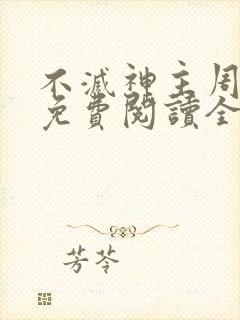 不滅神主周
免費閱讀全
芳苓